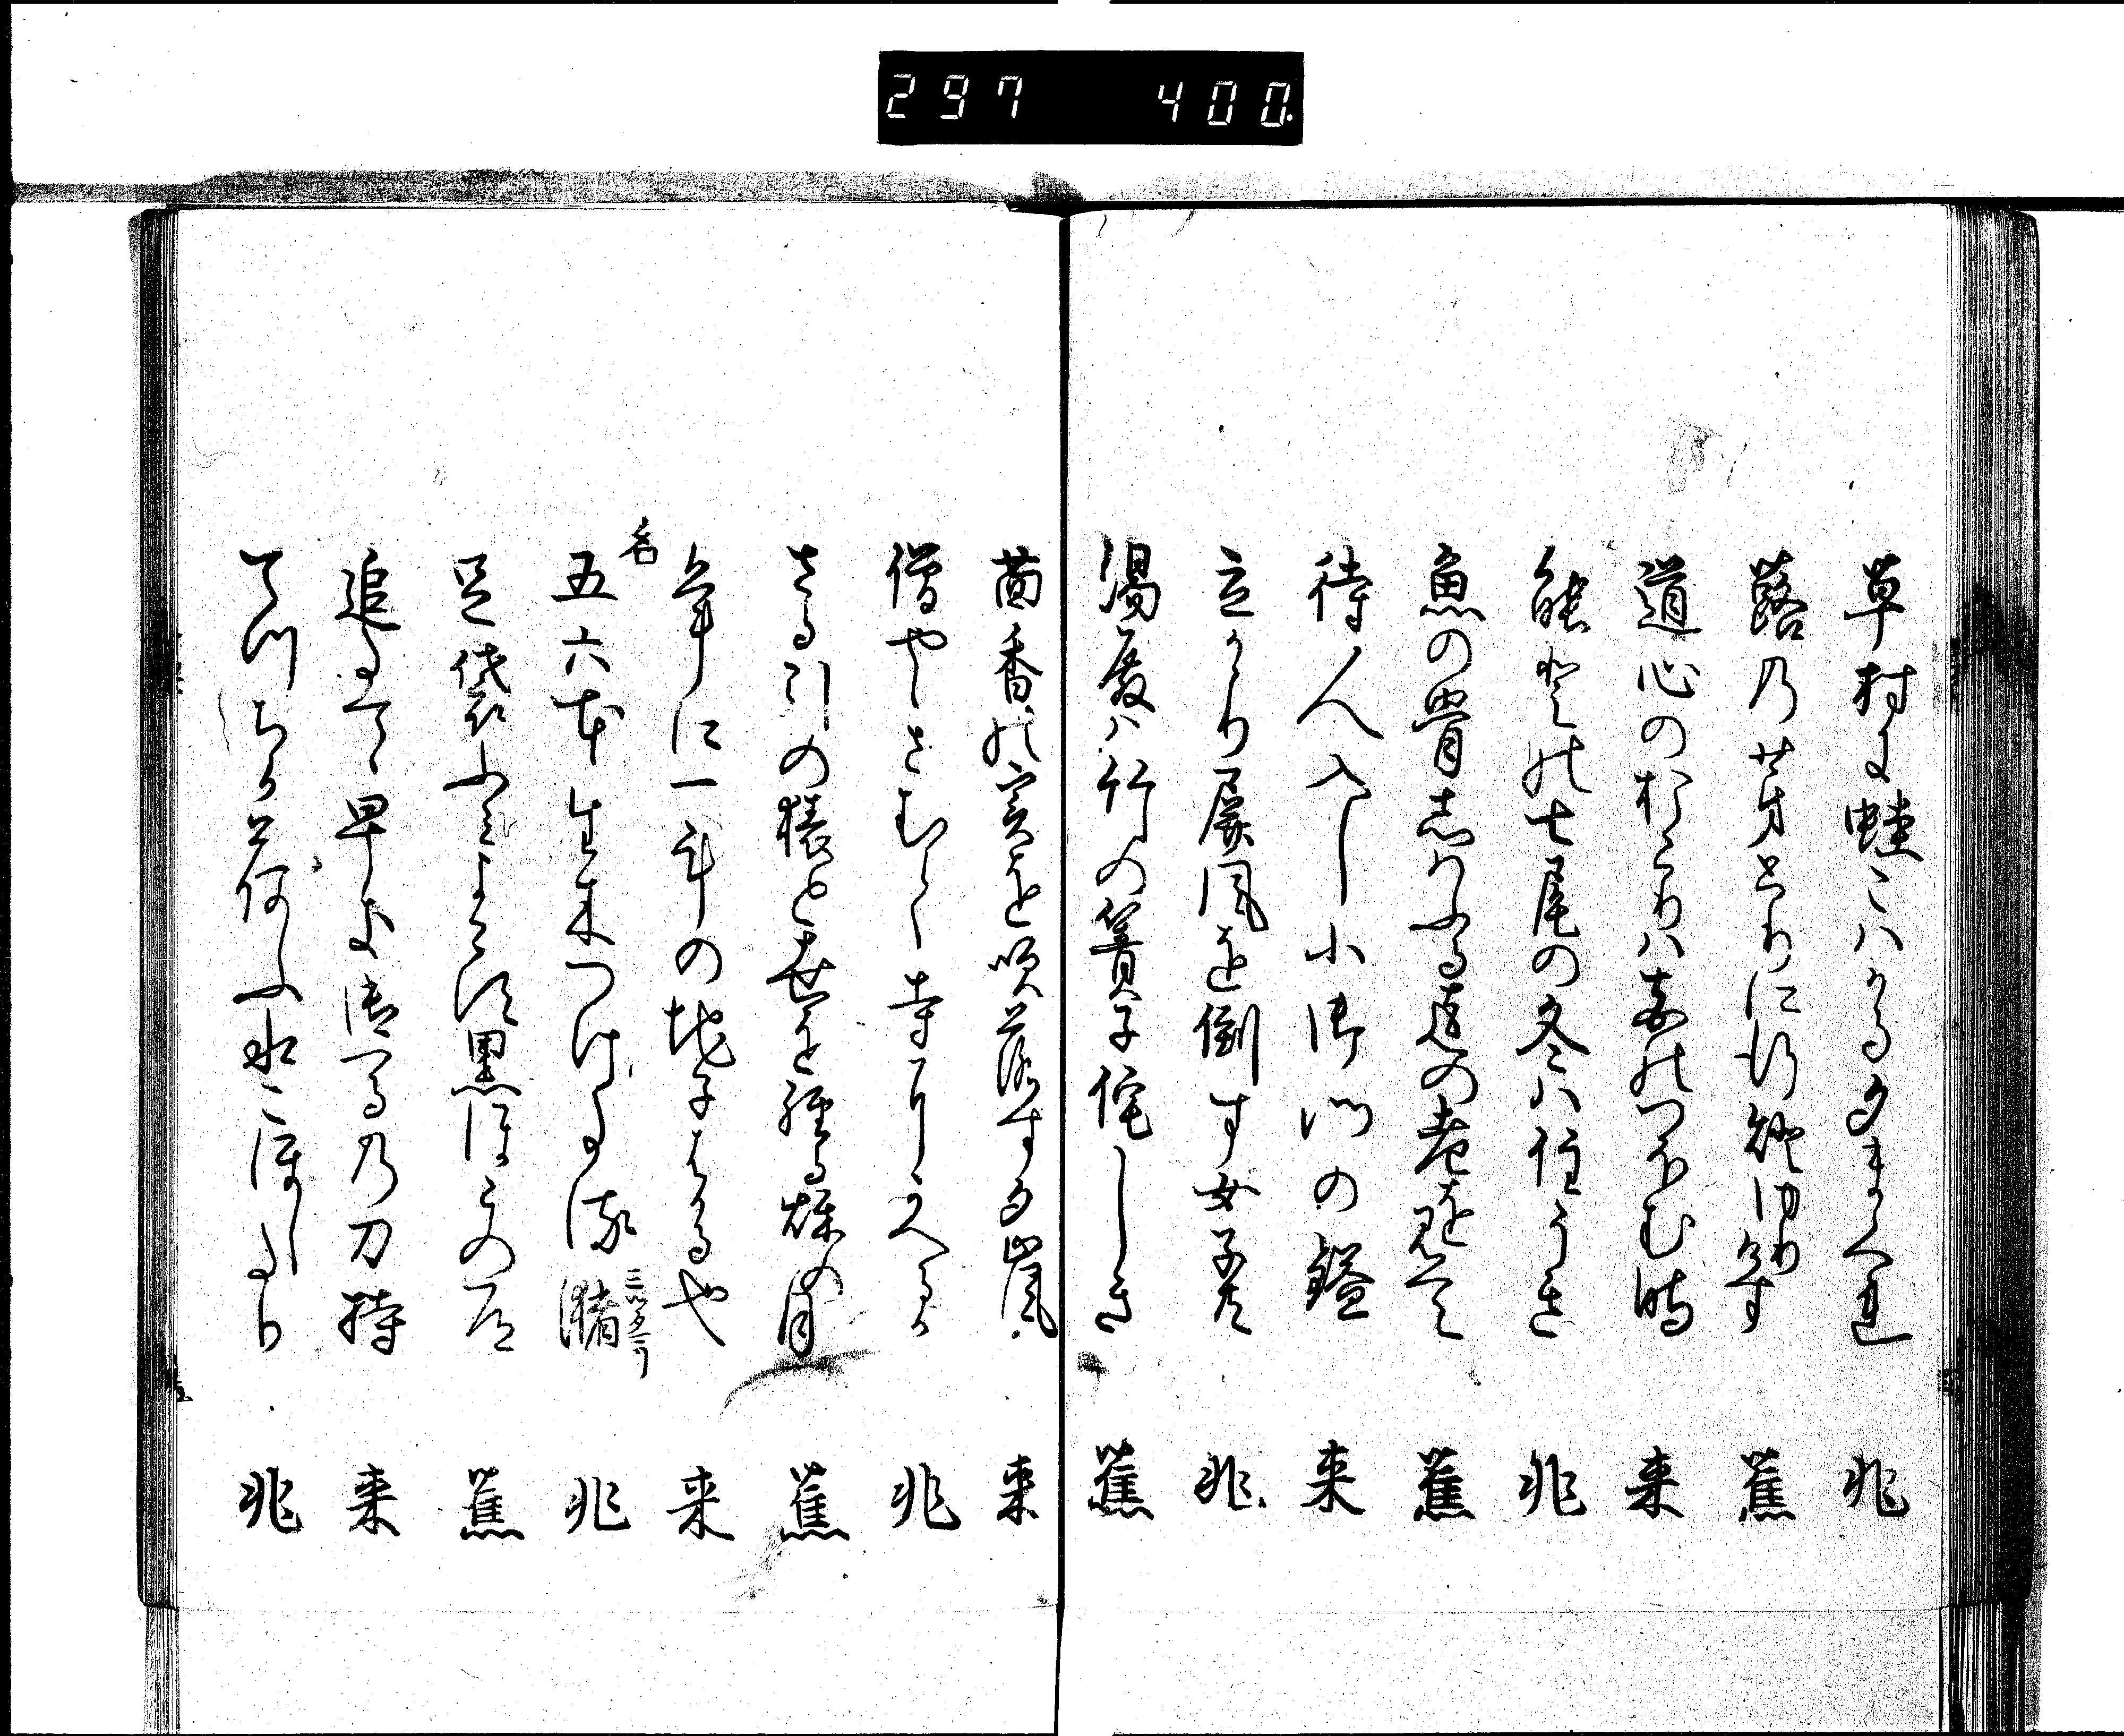 297 400
草村に蛙こハかる夕まくれ 兆
蕗の芽とりに行燈ゆりけす 蕉
道心のおこりハ花のつほむ時 来
能登の七尾の冬ハ住うき 兆
魚の骨しはふる迄の老を見て 蕉
待人入し小御門の鎰 来
立かゝり屏風を倒す女子共 兆
湯殿ハ竹の簀子侘しき 蕉
茴香の実を吹落す夕嵐 来
僧やゝさむく寺にかへるか 兆
さる引の猿と世を経る秋の月 蕉
年に一斗の地子はかる也 来
名
五六本生木つけたる瀦 兆
足袋ふみよこす黒ほこの道 蕉
追たてゝ早き御馬の刀持 来
てつちか荷ふ水こほしたり 兆